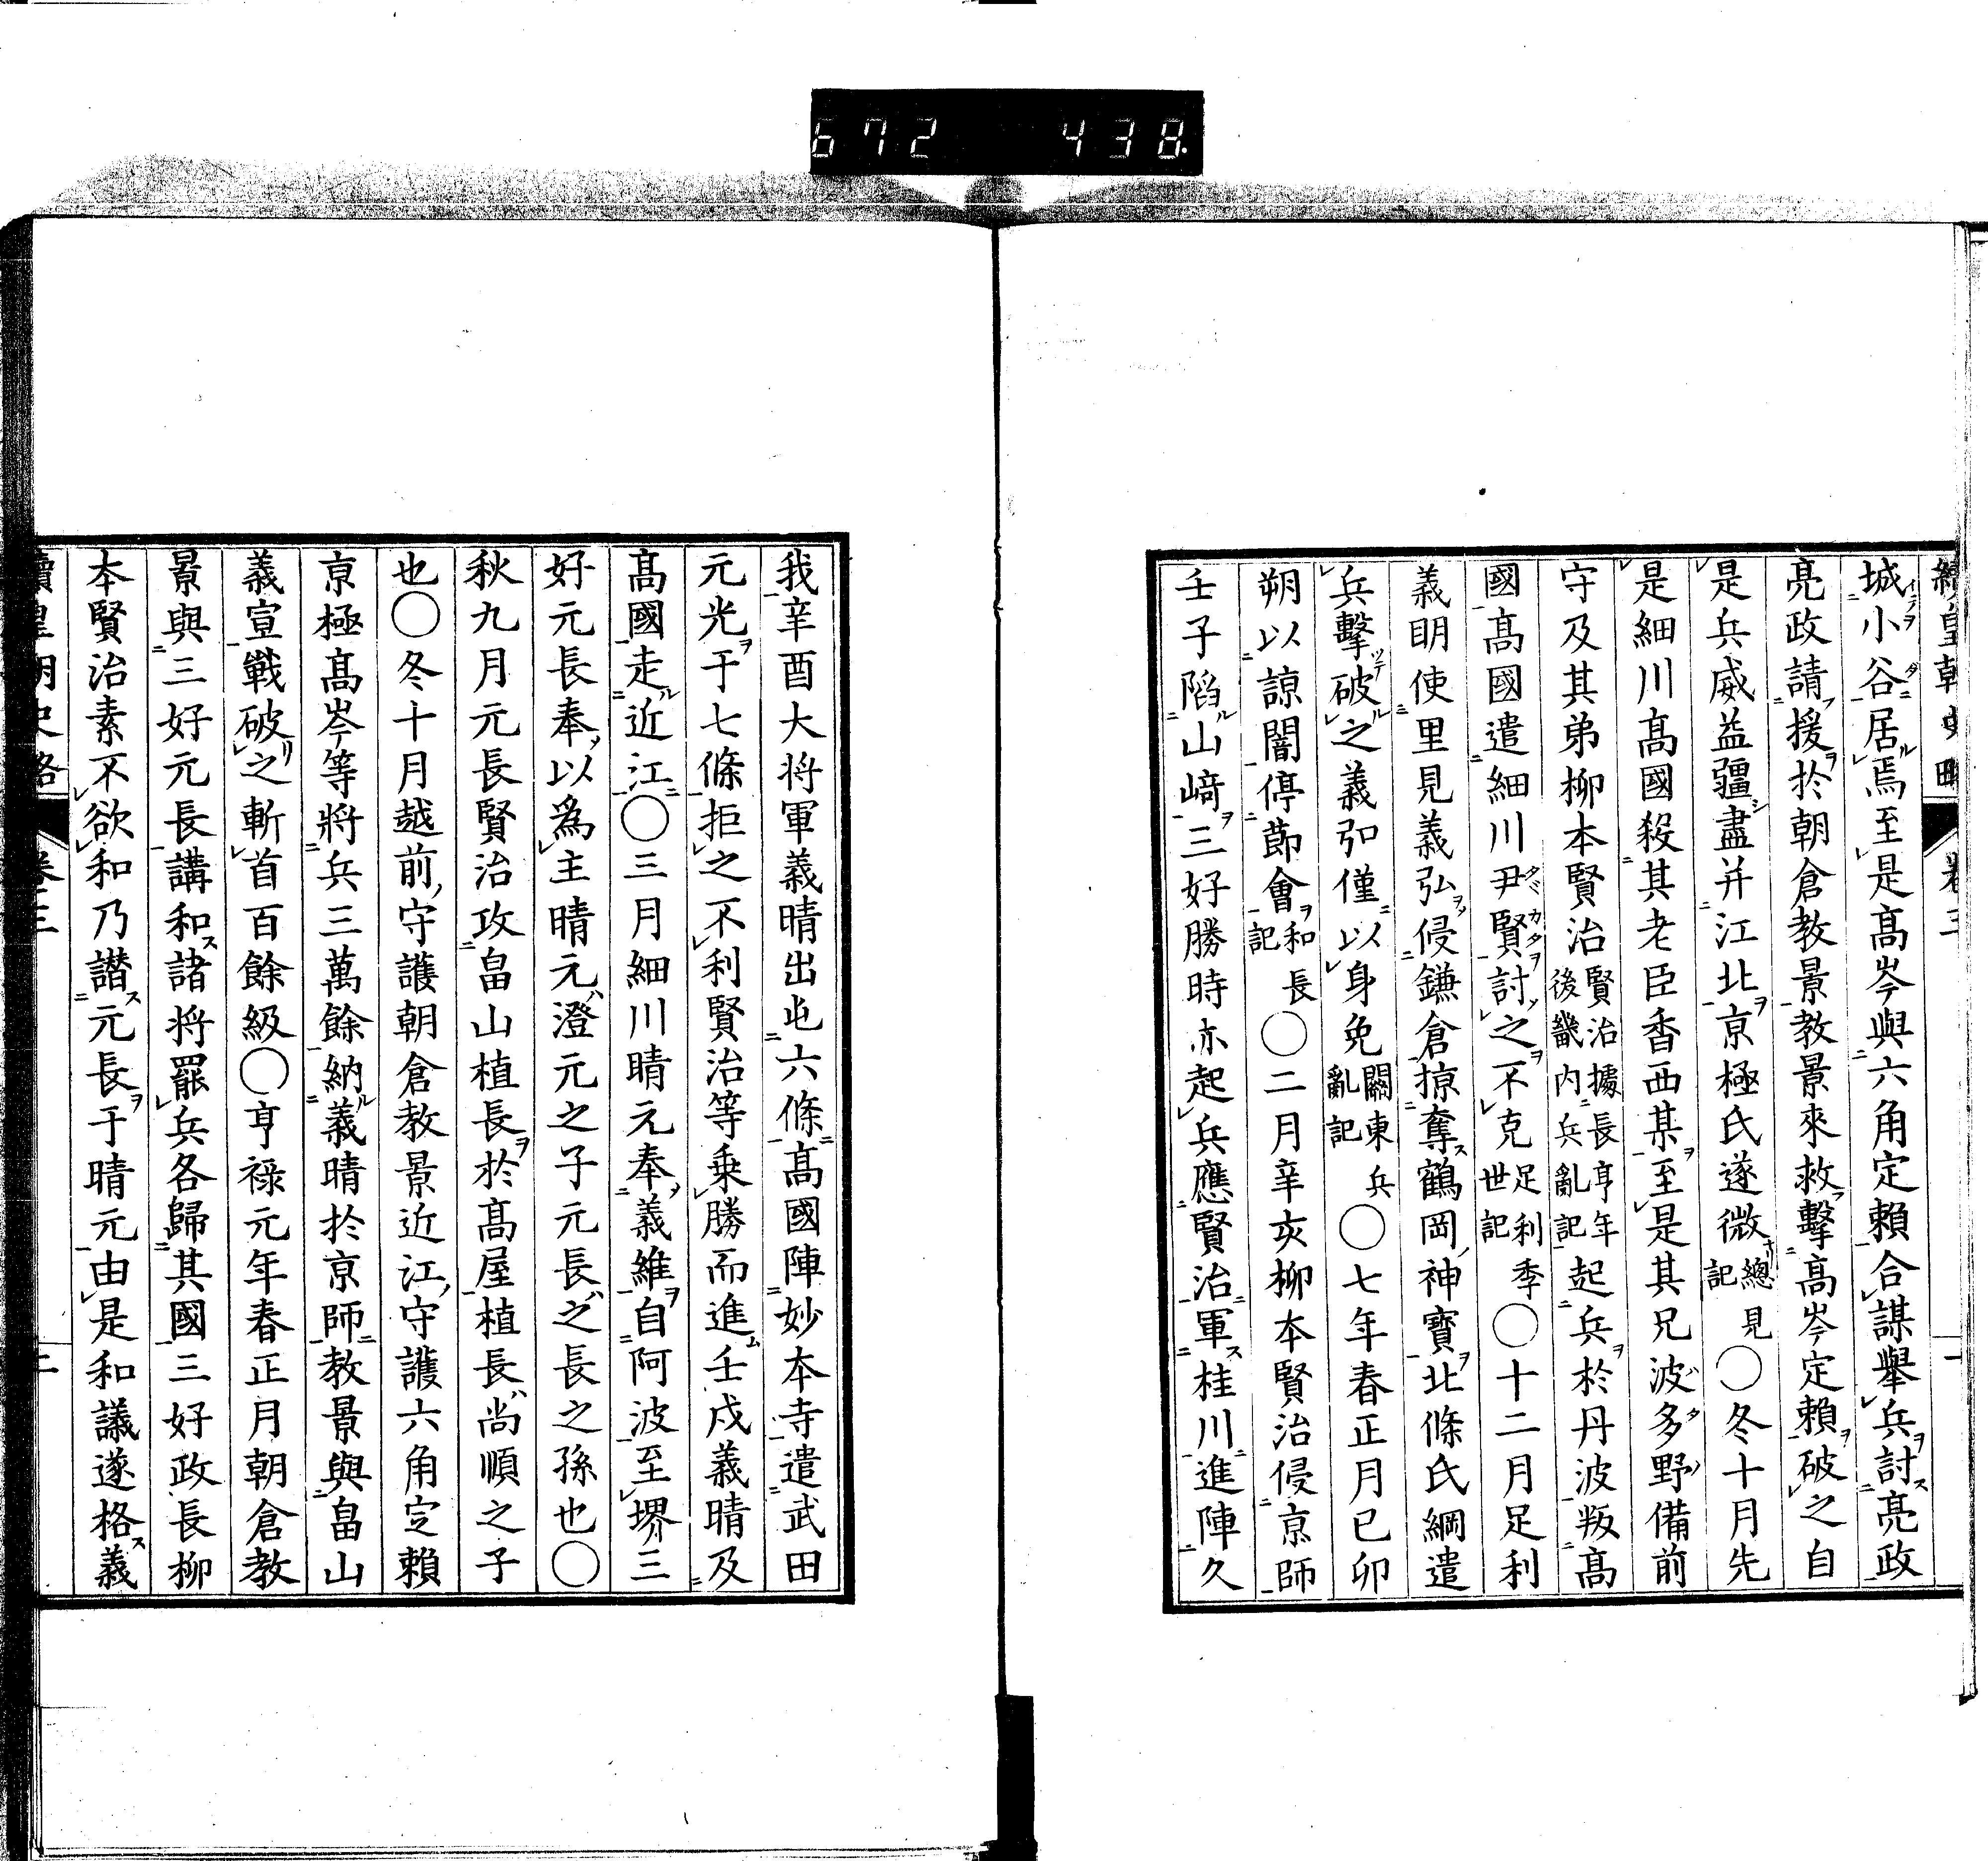 672 438
續皇朝史略 卷三 一
城小谷居焉至是高岑與六角定賴合謀舉兵討亮政
亮政請援於朝倉教景教景來救擊高岑定賴破之自
是兵威益疆盡并江北京極氏遂微總見記○冬十月先
是細川高國殺其老臣香西某至是其兄波多野備前
守及其弟柳本賢治賢治據長享年後畿內兵亂記起兵於丹波叛高
國高國遣細川尹賢討之不克足利季世記○十二月足利
義明使里見義弘侵鎌倉掠奪鶴岡神寶北條氏綱遣
兵擊破之義弘僅以身免關東兵亂記○七年春正月己卯
朔以諒闇停節會和長記○二月辛亥柳本賢治侵京師
壬子陷山崎三好勝時亦起兵應賢治軍桂川進陣久
我辛酉大將軍義晴出屯六條高國陣妙本寺遣武田
元光于七條拒之不利賢治等乘勝而進壬戌義晴及
高國走近江○三月細川晴元奉義維自阿波至堺三
好元長奉以爲主晴元澄元之子元長之長之孫也○
秋九月元長賢治攻畠山植長於高屋植長尚順之子
也○冬十月越前守護朝倉教景近江守護六角定賴
京極高岑等將兵三萬餘納義晴於京師教景與畠山
義宣戰破之斬首百餘級○亨祿元年春正月朝倉教
景與三好元長講和諸將罷兵各歸其國三好政長柳
本賢治素不欲和乃譖元長于晴元由是和議遂格義
續皇朝史略 卷三 二